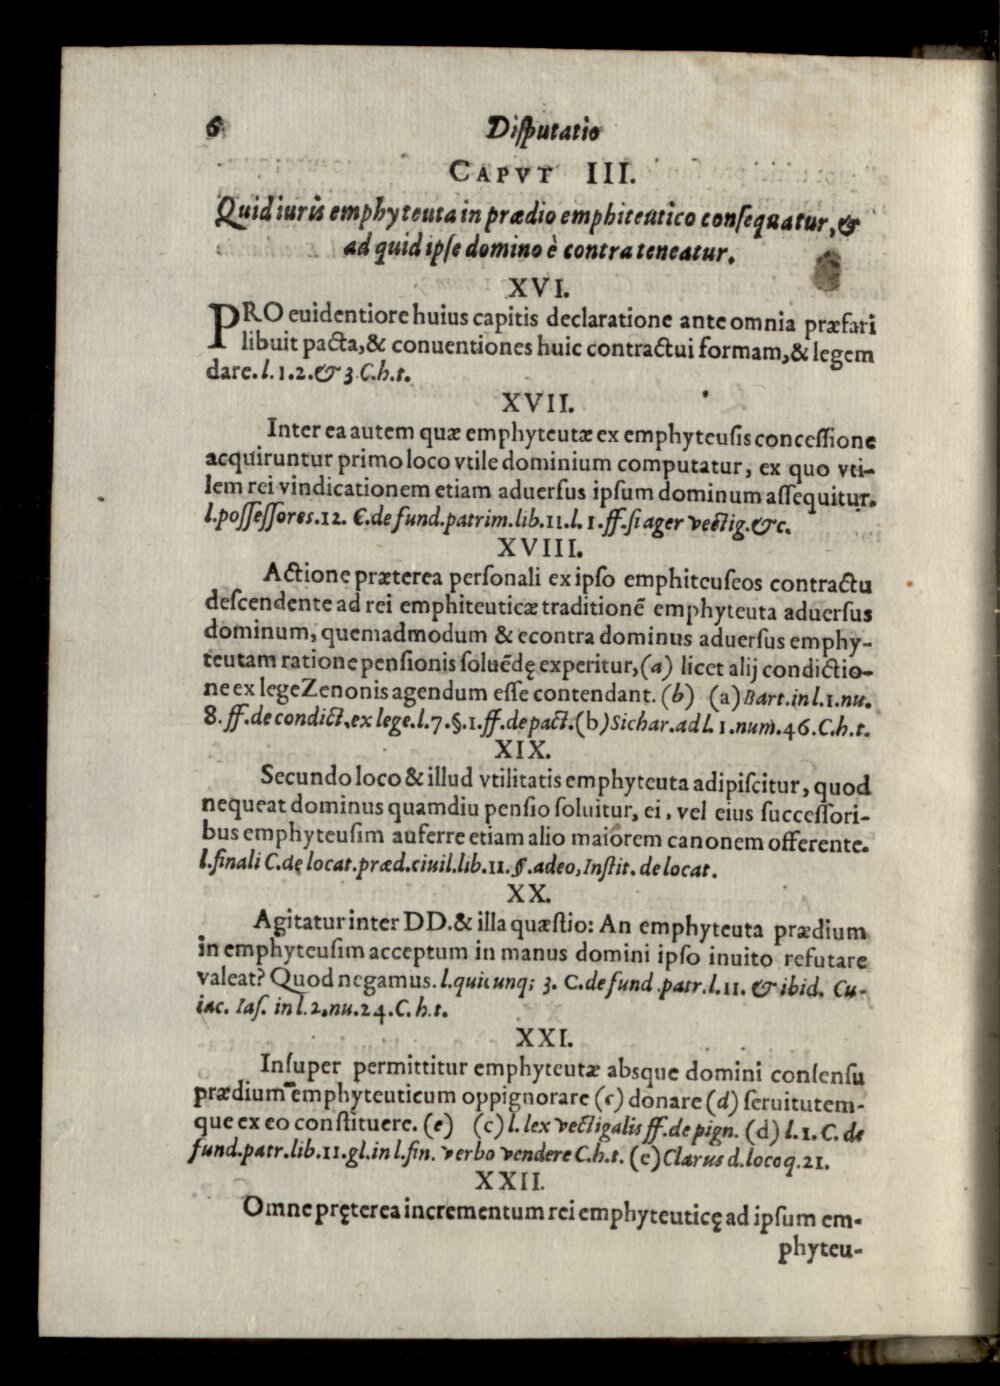 6 Disputatio
CAPVT III.
Quid iuris emphyteuta in prædio emphiteutico consequatur, &
ad quid ipse domino è contra teneatur.
XVI.
PRO euidentiore huius capitis declaratione ante omnia præfari
libuit pacta, & conuentiones huic contractui formam, & legem
dare. l. 1. 2. & 3 C. h. t.
XVII.
Inter ea autem quæ emphyteutæ ex emphyteusis concessione
acquiruntur primo loco vtile dominium computatur, ex quo vti-
lem rei vindicationem etiam aduersus ipsum dominum assequitur.
l. possessores. 12. C. de fund. patrim. lib. 11. l. 1. ff. si ager vectig. &c.
XVIII.
Actione præterea personali ex ipso emphiteuseos contractu
descendente ad rei emphiteuticæ traditionē emphyteuta aduersus
dominum, quemadmodum & econtra dominus aduersus emphy-
teutam ratione pensionis soluēdę experitur, (a) licet alij condictio-
ne ex lege Zenonis agendum esse contendant. (b) (a) Bart. in l. 1. nu.
8. ff. de condict. ex lege. l. 7. §. 1. ff. de pact. (b) Sichar. ad l. 1. num. 46. C. h. t.
XIX.
Secundo loco & illud vtilitatis emphyteuta adipiscitur, quod
nequeat dominus quamdiu pensio soluitur, ei, vel eius successori-
bus emphyteusim auferre etiam alio maiorem canonem offerente.
l. finali C. de locat. præd. ciuil. lib. 11. §. adeo, Instit. de locat.
XX.
Agitatur inter DD. & illa quæstio: An emphyteuta prædium
in emphyteusim acceptum in manus domini ipso inuito refutare
valeat? Quod negamus. l. quicunq; 3. C. de fund. patr. l. 11. & ibid. Cu-
iac. Ias. in l. 2. nu. 24. C. h. t.
XXI.
Insuper permittitur emphyteutæ absque domini consensu
prædium emphyteuticum oppignorare (c) donare (d) seruitutem-
que ex eo constituere. (e) (c) l. lex vectigalis ff. de pign. (d) l. 1. C. de
fund. patr. lib. 11. gl. in l. fin. verbo vendere C. h. t. (e) Clarus d. loco q. 21.
XXII.
Omne pręterea incrementum rei emphyteuticę ad ipsum em-
phyteu-